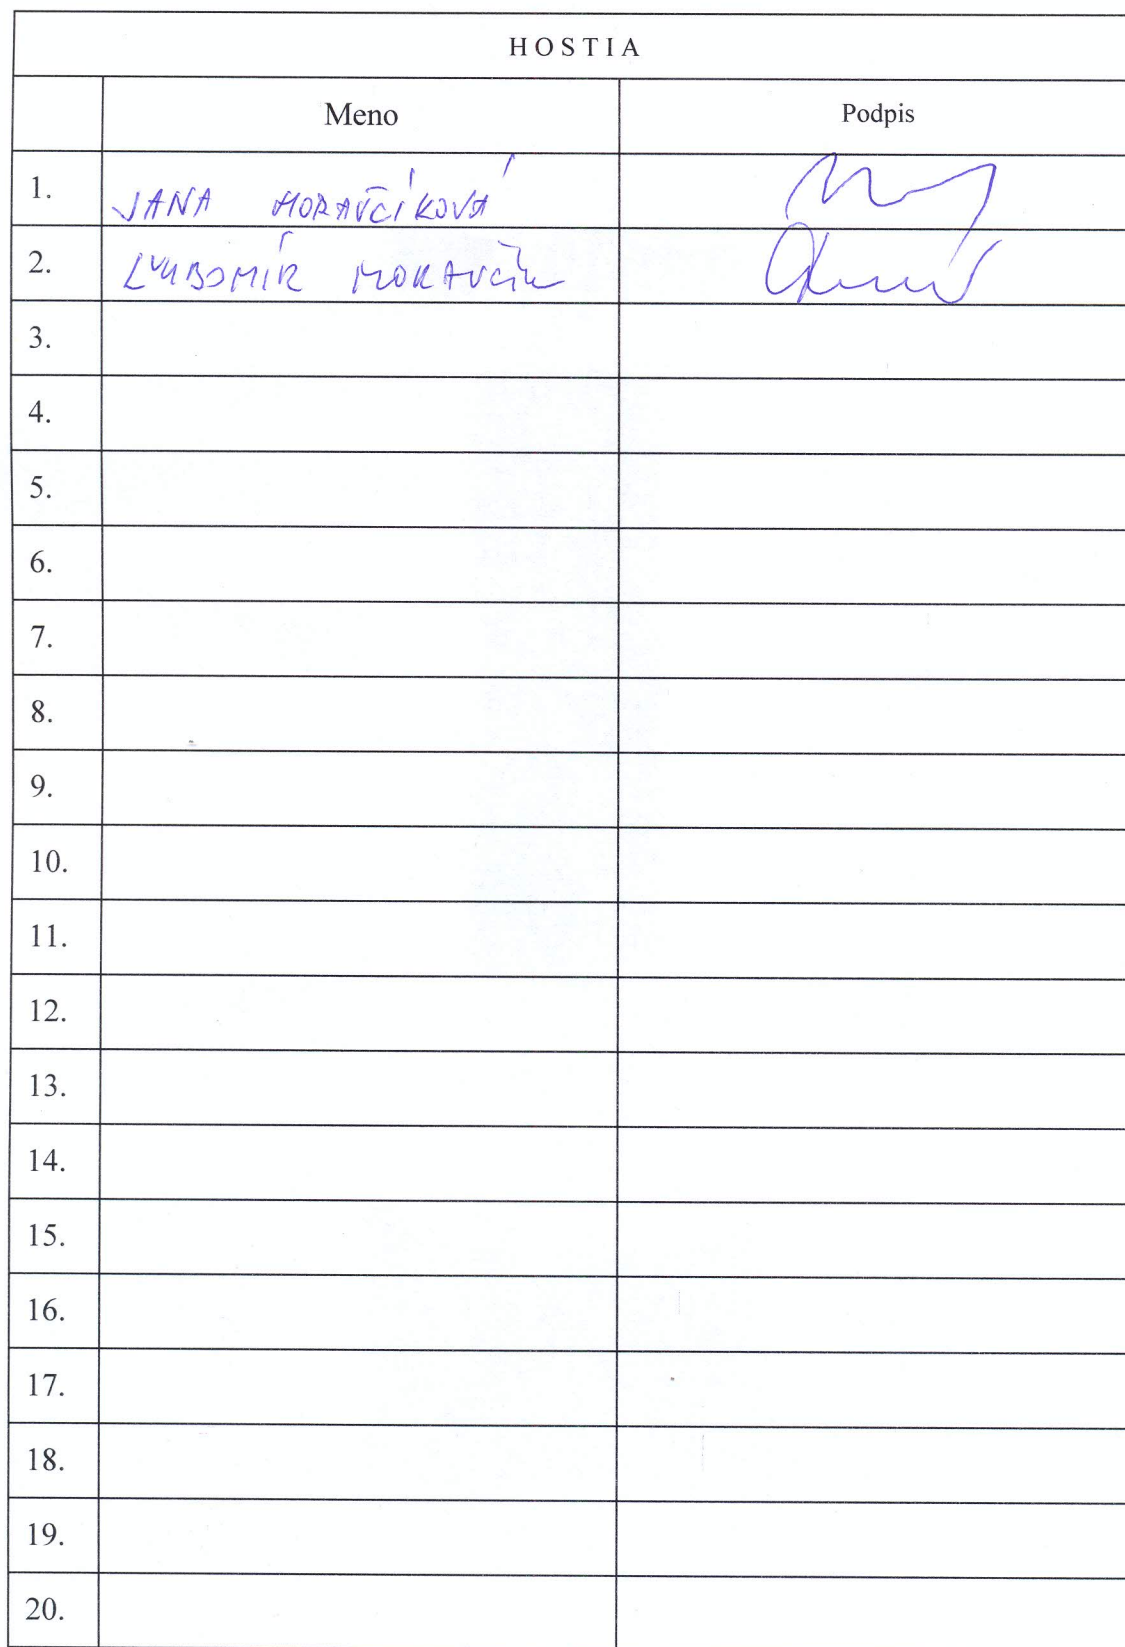 HOSTIA
Meno Podpis
1. JANA MORAVČÍKOVÁ
2. ĽUBOMÍR MORAVČÍK
3.
4.
5.
6.
7.
8.
9.
10.
11.
12.
13.
14.
15.
16.
17.
18.
19.
20.